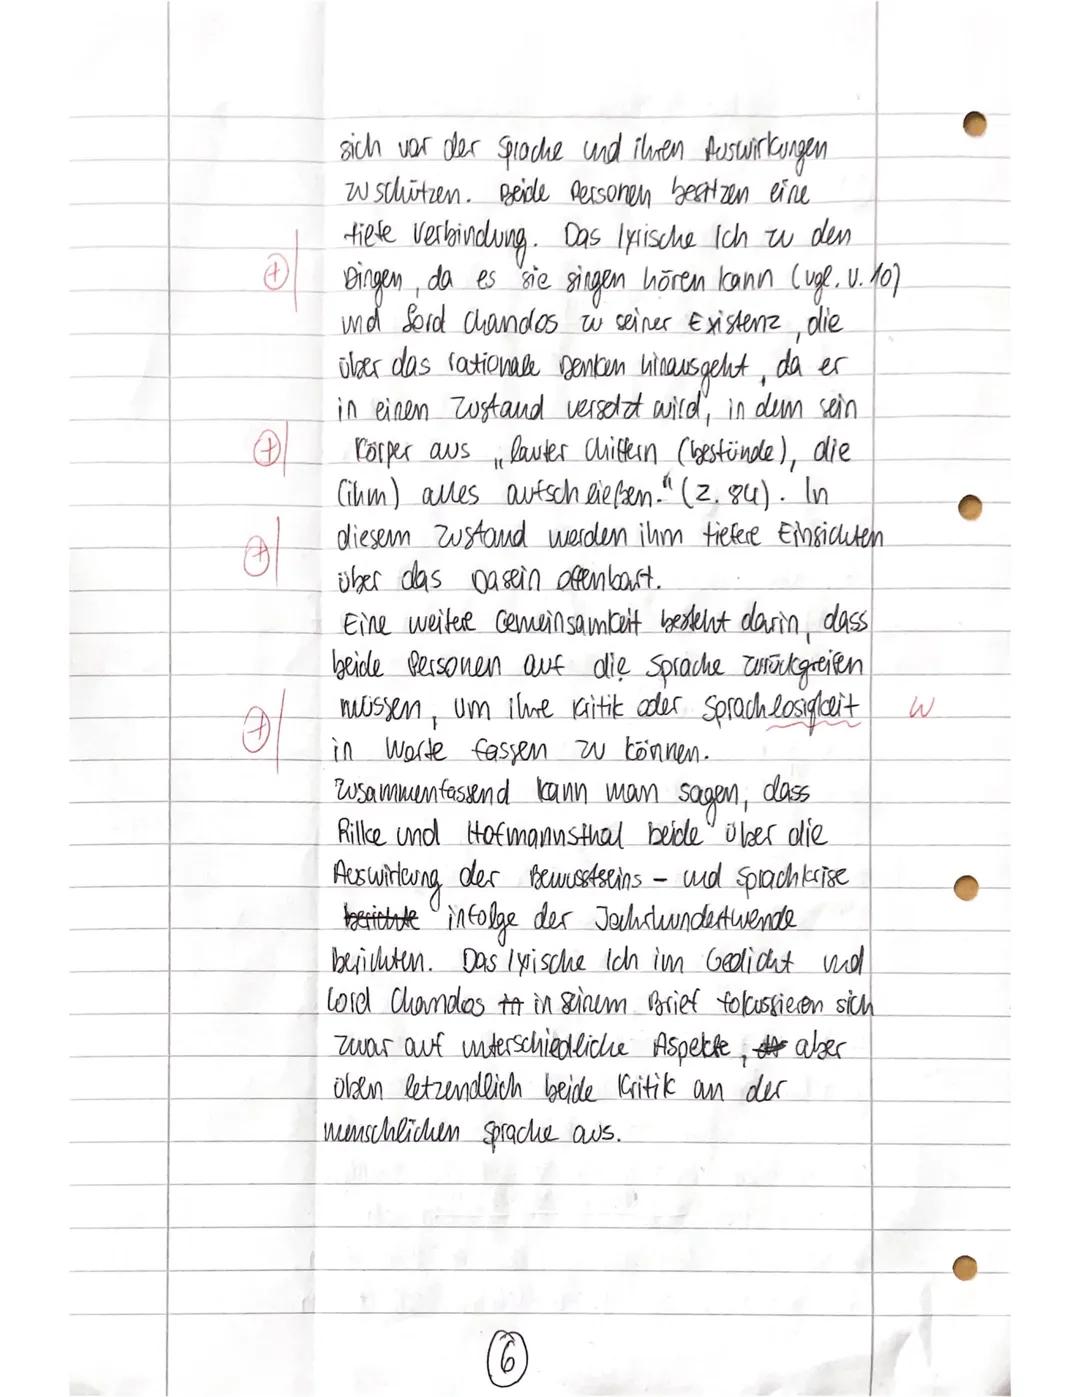 sich vor der Sprache und ihren Auswirkungen
zu schützen. Beide Personen besitzen eine
tiefe Verbindung. Das lyrische Ich zu den
Dingen, da es sie singen hören kann (vgl. V. 10)
und Lord Chandos zu seiner Existenz, die
über das rationale Denken hinausgeht, da er
in einen Zustand versetzt wird, in dem sein
Körper aus „lauter Chiffern (bestünde), die
(ihm) alles aufschließen." (Z. 84). In
diesem Zustand werden ihm tiefere Einsichten
über das Dasein offenbart.
Eine weitere Gemeinsamkeit besteht darin, dass
beide Personen auf die Sprache zurückgreifen
müssen, um ihre Kritik oder Sprachlosigkeit W
in Worte fassen zu können.
Zusammenfassend kann man sagen, dass
Rilke und Hofmannsthal beide über die
Auswirkung der Bewusstseins- und Sprachkrise
berichte infolge der Jahrhundertwende
berichten. Das lyrische Ich im Gedicht und
Lord Chandos in seinem Brief fokussieren sich
zwar auf unterschiedliche Aspekte, aber
üben letzendlich beide Kritik an der
menschlichen Sprache aus.
6